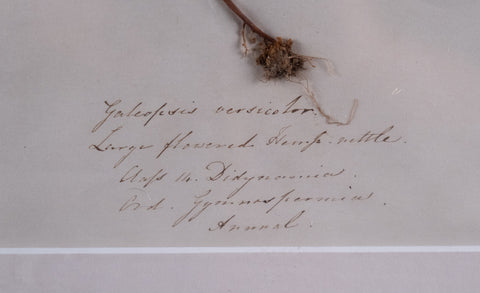 Galeopsis versicolor.
Large flowered Hemp-nettle.
Class 14. Didynamia.
Ord. Gymnospermia.
Annual.